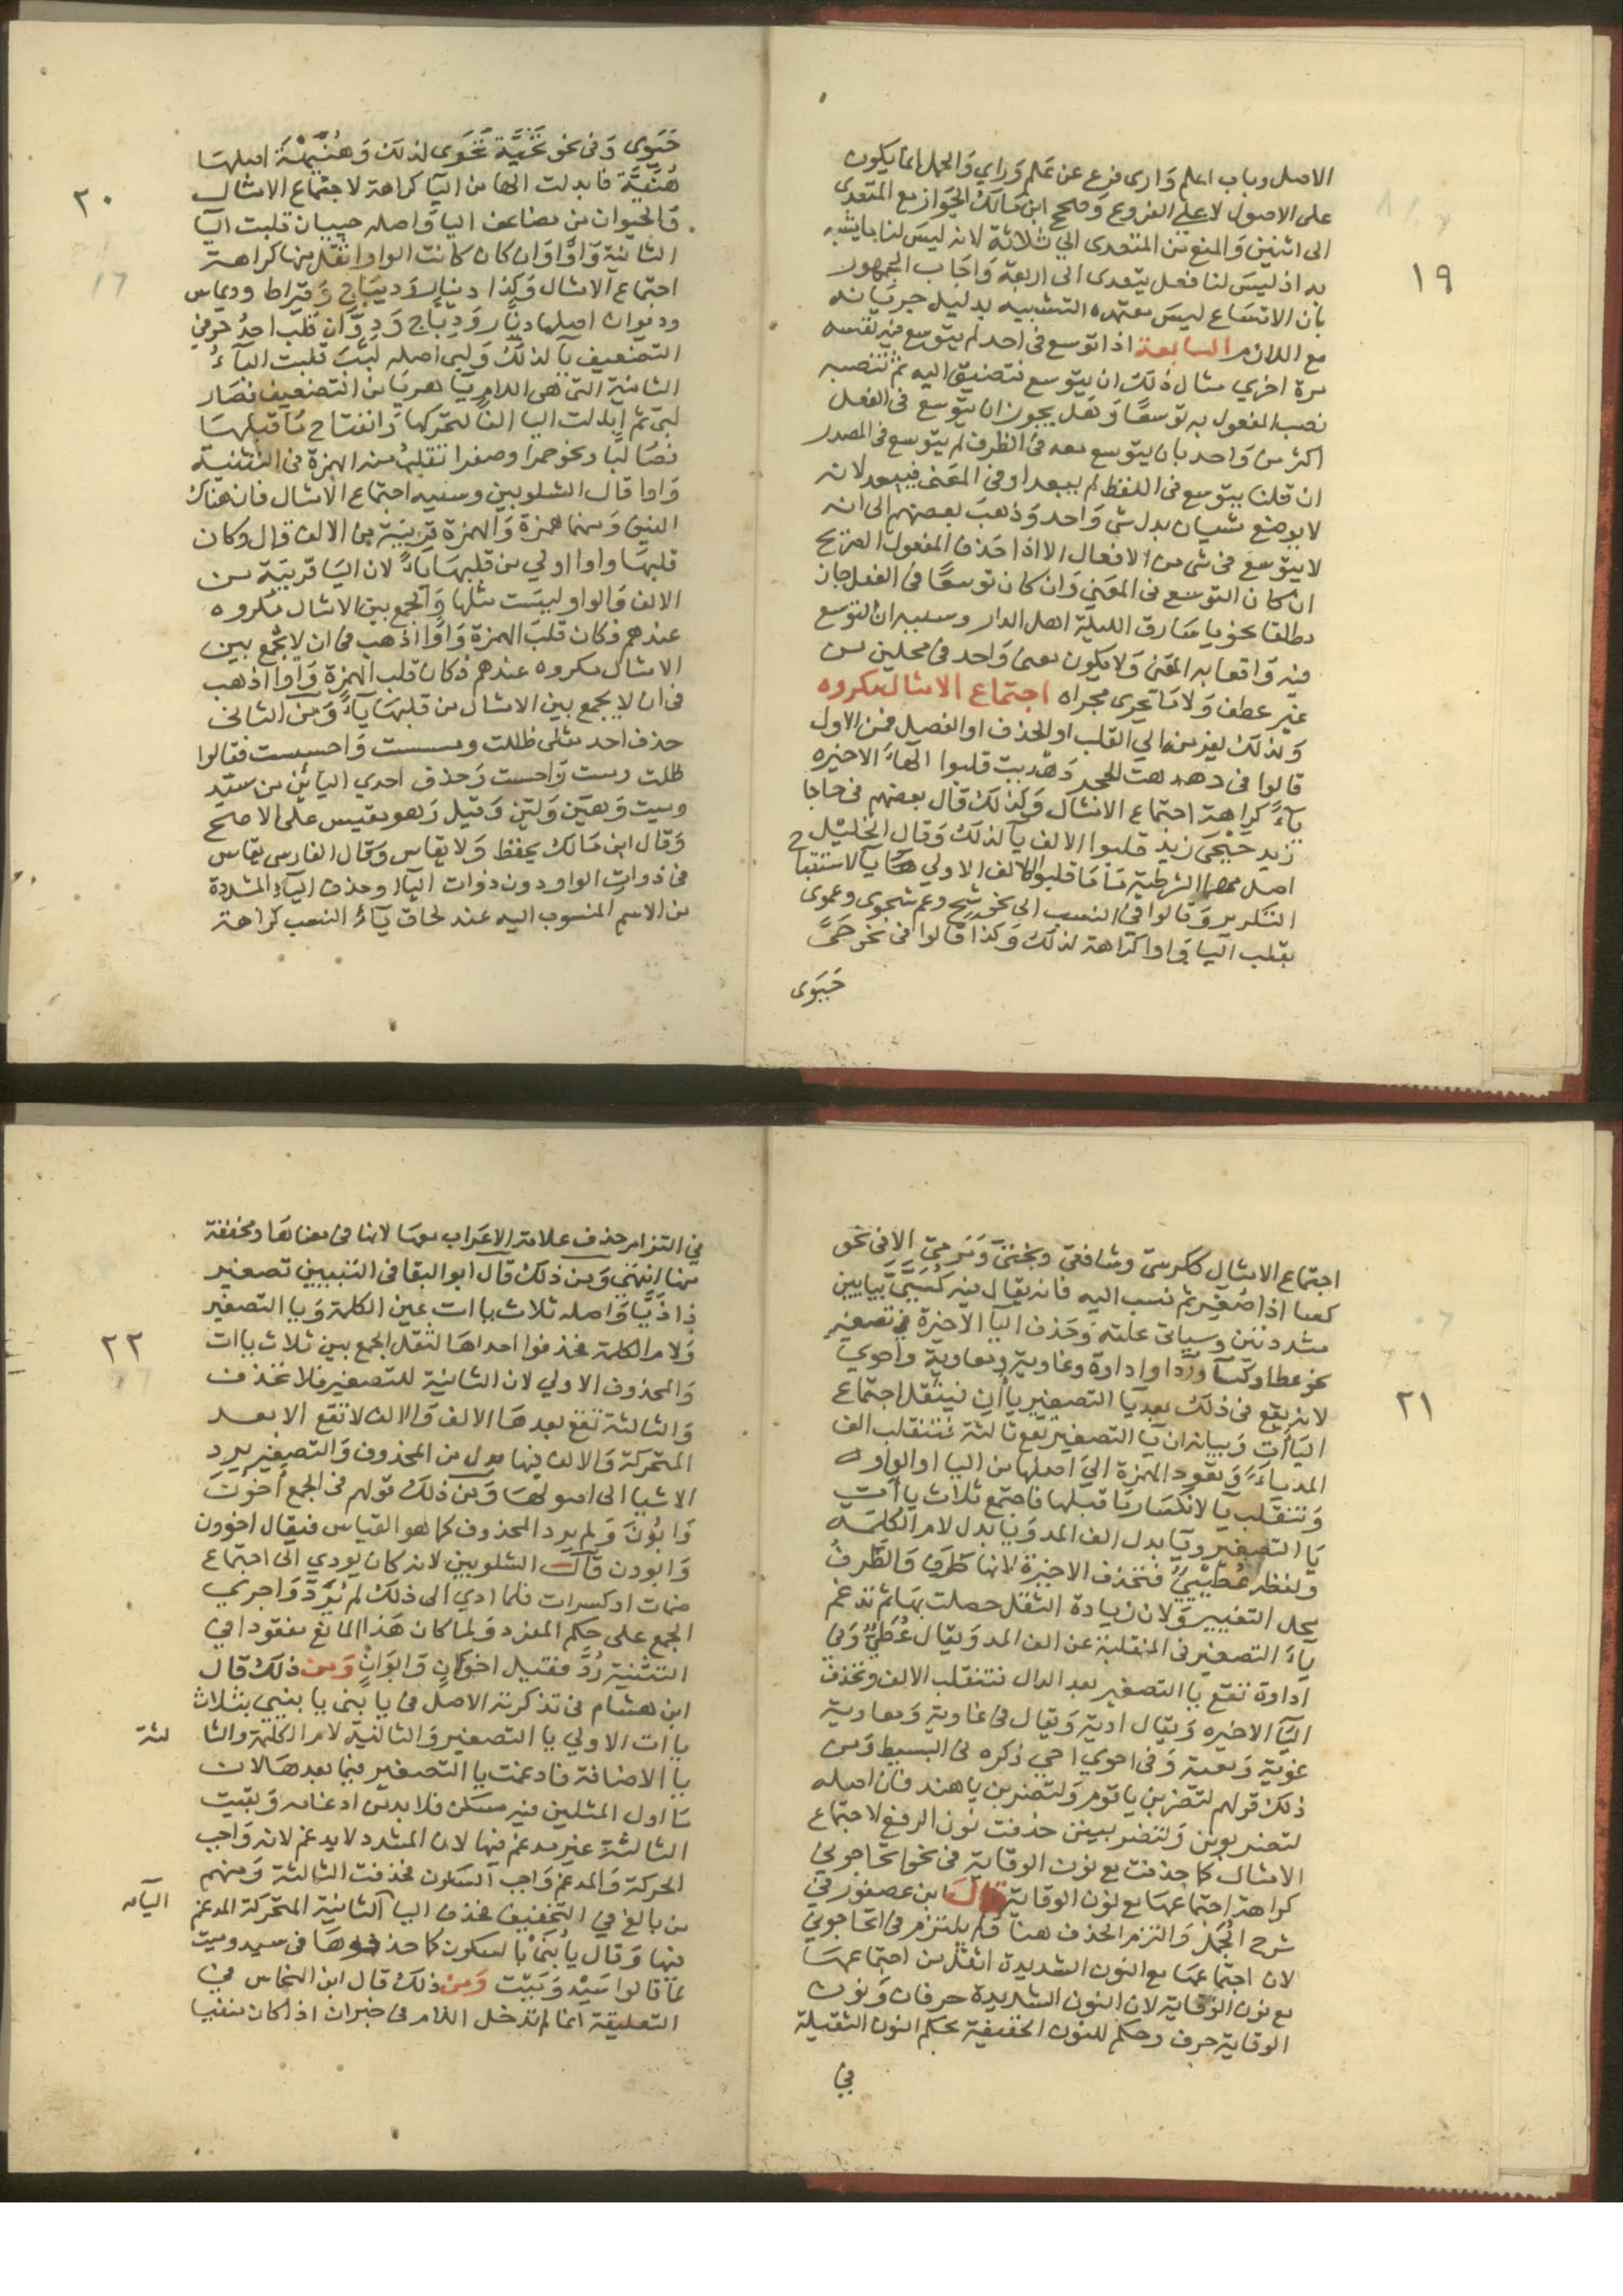 الاصل وباب اعلم وارى فرع عن علم وراي والحمل انما يكون
على الاصول لا على الفروع وصحح ابن مالك الجواز مع المتعدى
الى اثنين والمنع من المتعدى الي ثلاثة لانه ليس لنا ما يشبه
به اذ ليس لنا فعل يتعدى الى اربعة واجاب الجمهور
بان الاتساع ليس معتمده التشبيه بدليل جريانه
مع اللازم السابعة اذا توسع فى واحد لم يتوسع فيه نفسه
مرة اخري مثال ذلك ان يتوسع فتضيف اليه ثم تنصبه
نصب المفعول به توسعًا وهل يجوز ان يتوسع فى الفعل
اكثر من واحد بان يتوسع معه في الظرف ثم يتوسع فى المصدر
ان قلنا يتوسع فى اللفظ لم يبعد او فى المعنى فيبعد لانه
لا يوضع شيان بدل شى واحد وذهب بعضهم الى انه
لا يتوسع فى شى من الافعال الا اذا حذف المفعول الصريح
ان كان التوسع فى المعني وان كان توسعًا في الفعل جاز
مطلقا نحو يا سارق الليلة اهل الدار وسببه ان التوسع
فيه واقعا به المعنى ولا يكون معنى واحد فى محلين من
غير عطف ولا ما يجرى مجراه اجتماع الامثال مكروه
ولذلك يفر منه الي القلب او الحذف او الفصل فمن الاول
قالوا فى دهدهت الحجر دهديت قلبوا الهاء الاخيره
ياءً كراهة اجتماع الامثال وكذلك قال بعضهم فى حاحا
زيد حيحى زيد قلبوا الالف يا لذلك وقال الخليل
اصل مهما الشرطية ما ما قلبوا الالف الاولي ها لاستقباح
التكرير وقالوا فى النسب الى نحو شج وعم شجوى وعموى
بقلب اليا واوا كراهة لذلك وكذا قالوا فى نحو حىّ
حيوى
١٩
حيوى وفى نحو تحية تحوى لذلك وهنيهة اصلها
هنيّة فابدلت الها من اليا كراهة لاجتماع الامثال
والحيوان من مضاعف اليا واصله حييان قلبت اليا
الثانية واوًا وان كان كانت الواو اثقل منها كراهة
اجتماع الامثال وكذا دينار وديباج وقيراط وديماس
وديوان اصلها دنّار ودبّاج ودوّان قلب احد حرفي
التضعيف يا لذلك ولبى اصله لبّب قلبت الباء
الثانية التى هى اللام يا هربا من التضعيف فصار
لبى ثم ابدلت اليا الفًا لتحركها وانفتاح ما قبلها
فصار لبا ونحو حمرا وصفرا تقلب منه الهمزة فى التثنية
واوا قال الشلوبين وسببه اجتماع الامثال فان هناك
الفين وبينهما همزة والهمزة قريبة من الالف قال وكان
قلبها واوا اولي من قلبها ياءً لان اليا قريبة من
الالف والواو ليست مثلها والجمع بين الامثال مكروه
عندهم فكان قلب الهمزة واوًا اذهب فى ان لا يجمع بين
الامثال مكروه عندهم فكان قلب الهمزة واوا اذهب
فى ان لا يجمع بين الامثال من قلبها ياءً ومن الثانى
حذف احد مثلى ظللت ومسست واحسست فقالوا
ظلت ومست واحست وحذف احدي اليائين من سيّد
وميت وهيّن وليّن وقيل وهو مقيس على الاصح
وقال ابن مالك يحفظ ولا يقاس وقال الفارسى يقاس
فى ذوات الواو دون ذوات الياء وحذف الياء المشددة
من الاسم المنسوب اليه عند لحاق ياء النسب كراهة
٢٠
اجتماع الامثال ككرسى وشافعى وبختى ومرمى الا فى نحو
كسا اذا صُغّر ثم نسب اليه فانه يقال فيه كُسَيّىّ بيايين
مشددتين وسياتى علته وحذف اليا الاخيرة فى تصغير
نحو عطا وكسا وردا واداوة وغاوية ومعاوية واحوي
لانه يقع فى ذلك بعد يا التصغير ياأن فيثقل اجتماع
الياأت وبيانه ان يا التصغير تقع ثالثة فتنقلب الف
المد ياءً وتعود الهمزة الي اصلها من اليا او الواو
وتنقلب يا لانكسار ما قبلها فاجتمع ثلاث يا أت
يا التصغير ويا بدل الف المد ويا بدل لام الكلمة
ولفظه عُطَيّيٌ فتحذف الاخيرة لانها طرف والطرف
محل التغيير ولان زيادة الثقل حصلت بها ثم تدغم
ياء التصغير فى المنقلبة عن الف المد ويقال عُطَيّ وفي
اداوة تقع يا التصغير بعد الدال فتنقلب الالف وتحذف
اليا الاخيره ويقال ادية ويقال فى غاوية ومعاوية
غوية ومعية وفى احوي احي ذكره فى البسيط ومن
ذلك قولهم لتضربن يا قوم ولتضربن يا هند فان اصله
لتضربونن ولتضربينن حذفت نون الرفع لاجتماع
الامثال كما حذفت مع نون الوقاية فى نحو اتحاجوني
كراهة اجتماعها مع نون الوقاية قال ابن عصفور في
شرح الجمل والتزم الحذف هنا ولم يلتزم فى اتحاجوني
لان اجتماعها مع النون الشديدة اثقل من اجتماعها
مع نون الوقاية لان النون الشديدة حرفان ونون
الوقاية حرف وحكم للنون الخفيفة بحكم النون الثقيلة
في
٢١
في التزام حذف علامة الاعراب معها لانها فى معناها ومخففة
منها انتهى ومن ذلك قال ابو البقا فى التبيين تصغير
ذا ذيّا واصله ثلاث ياات عين الكلمة ويا التصغير
ولام الكلمة فحذفوا احداها لثقل الجمع بين ثلاث ياات
والمحذوف الاولي لان الثانية للتصغير فلا تحذف
والثالثة تقع بعدها الالف والالف لا تقع الا بعد
المتحركة والالف فيها بدل من المحذوف والتصغير يرد
الاشيا الى اصولها ومن ذلك قولهم فى الجمع أخُونَ
وابُونَ ولم يرد المحذوف كما هو القياس فيقال اخوون
وابوون قال الشلوبين لانه كان يودي الى اجتماع
ضمات او كسرات فلما ادي الى ذلك لم يُرَدّ واجري
الجمع على حكم المفرد ولما كان هذا المانع مفقودا في
التثنية رُدَّ فقيل اخوانِ وابوانِ ومن ذلك قال
ابن هشام فى تذكرته الاصل فى يا بنى يا بنيي بثلاث
ياات الاولي يا التصغير والثانية لام الكلمة والثا لثة
يا الاضافة فادغمت يا التصغير فيما بعدها لان
ما اول المثلين فيه مسكن فلا بد من ادغامه وبقيت
الثالثة غير مدغم فيها لان المشدد لا يدغم لانه واجب
الحركة والمدغم واجب السكون فحذفت الثالثة ومنهم
من بالغ فى التخفيف فحذف اليا الثانية المتحركة المدغم الياء
فيها وقال يا بُنَىْ بالسكون كما حذفوها فى سيد وميت
لما قالوا سَيْد ومَيْت ومن ذلك قال ابن النحاس فى
التعليقة انما لم تدخل اللام فى خبر ان اذا كان منفيا
٢٢